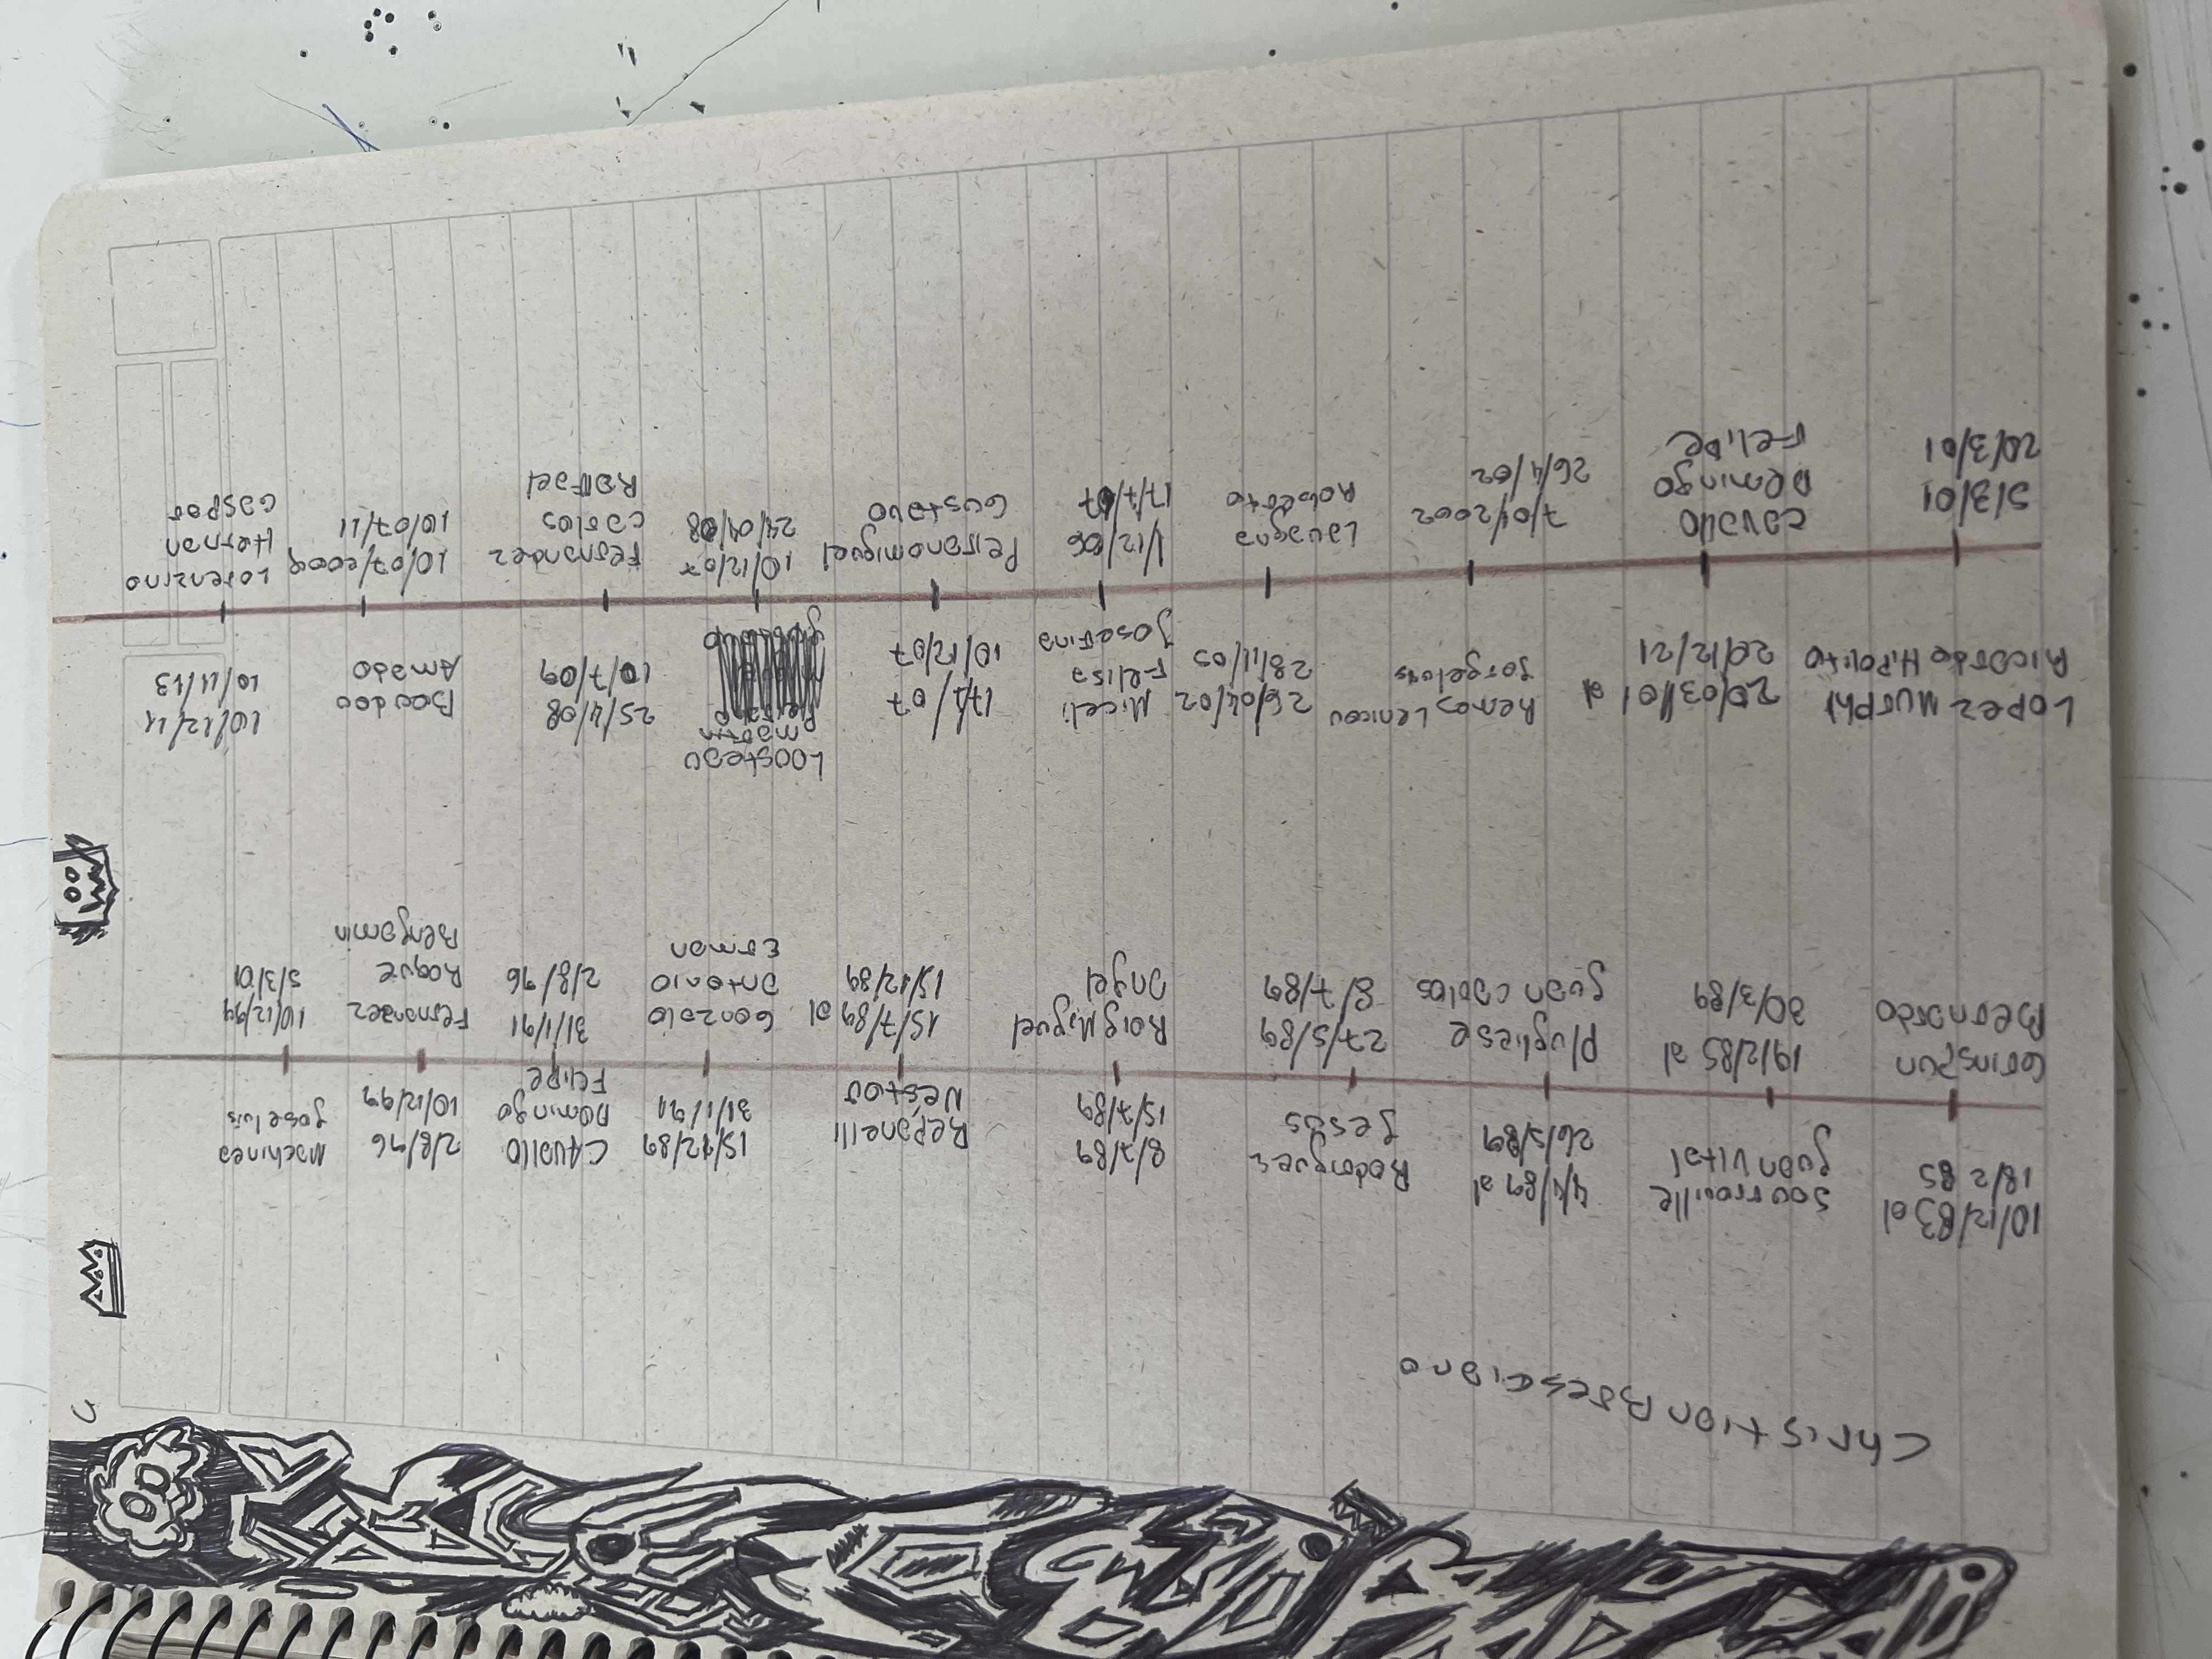 Christian Bresciano
10/12/83 al
18/2 85
Sourrouille
Juan Vital
4/4/89 al
26/5/89
Rodriguez
Jesus
8/7/89
15/7/89
Repanelli
Nestor
15/12/89
31/1/91
Cavallo
Domingo
Felipe
2/8/96
10/12/99
Machinea
Jose luis
Grinspun
Bernardo
19/2/85 al
30/3/89
Plugliese
Juan Carlos
27/5/89
8/7/89
Roig Miguel
Angel
15/7/89 al
15/12/89
Gonzalo
Antonio
Erman
31/1/91
2/8/96
Fernandez
Roque
Benjamin
10/12/99
5/3/01
Lopez Murphy
Ricardo Hipolito
20/03/01 al
20/12/21
Remes Lenicov
Jorge luis
26/04/02
28/11/05
Miceli
Felisa
Josefina
17/ /07
10/12/07
Loosteau
Martin
25/4/08
10/7/09
Boudou
Amado
10/12/11
10/11/13
5/3/01
20/3/01
Cavallo
Domingo
Felipe
7/01/2002
26/4/02
Lavagna
Roberto
1/12/05
17/7/07
Peirano miguel
Gustavo
10/12/07
24/04/08
Fernandez
Carlos
Rafael
10/07/2009
10/07/11
Lorenzino
Hernan
Gaspar